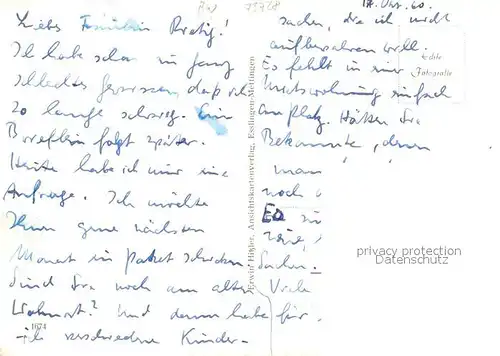 17. Okt. 60.
Liebes Fräulein
Ich habe schon ein ganz
schlechtes Gewissen, daß ich
so lange schwieg. Ein
Brieflein folgt später.
Heute habe ich nur eine
Anfrage. Ich möchte
Ihnen gerne nächsten
Monat ein Paket schicken
Sind Sie noch am alten
Wohnort? Und dann habe
ich verschiedene Kinder-
sachen, die ich nicht
aufbewahren will.
Es fehlt in einer
Mietswohnung einfach
am Platz. Hätten Sie
Bekannte, denen
man
noch
Es
Sachen.
Viele
für
1674
Erwin Högler, Ansichtskartenverlag, Esslingen-Mettingen
Echte
Fotografie
privacy protection
Datenschutz